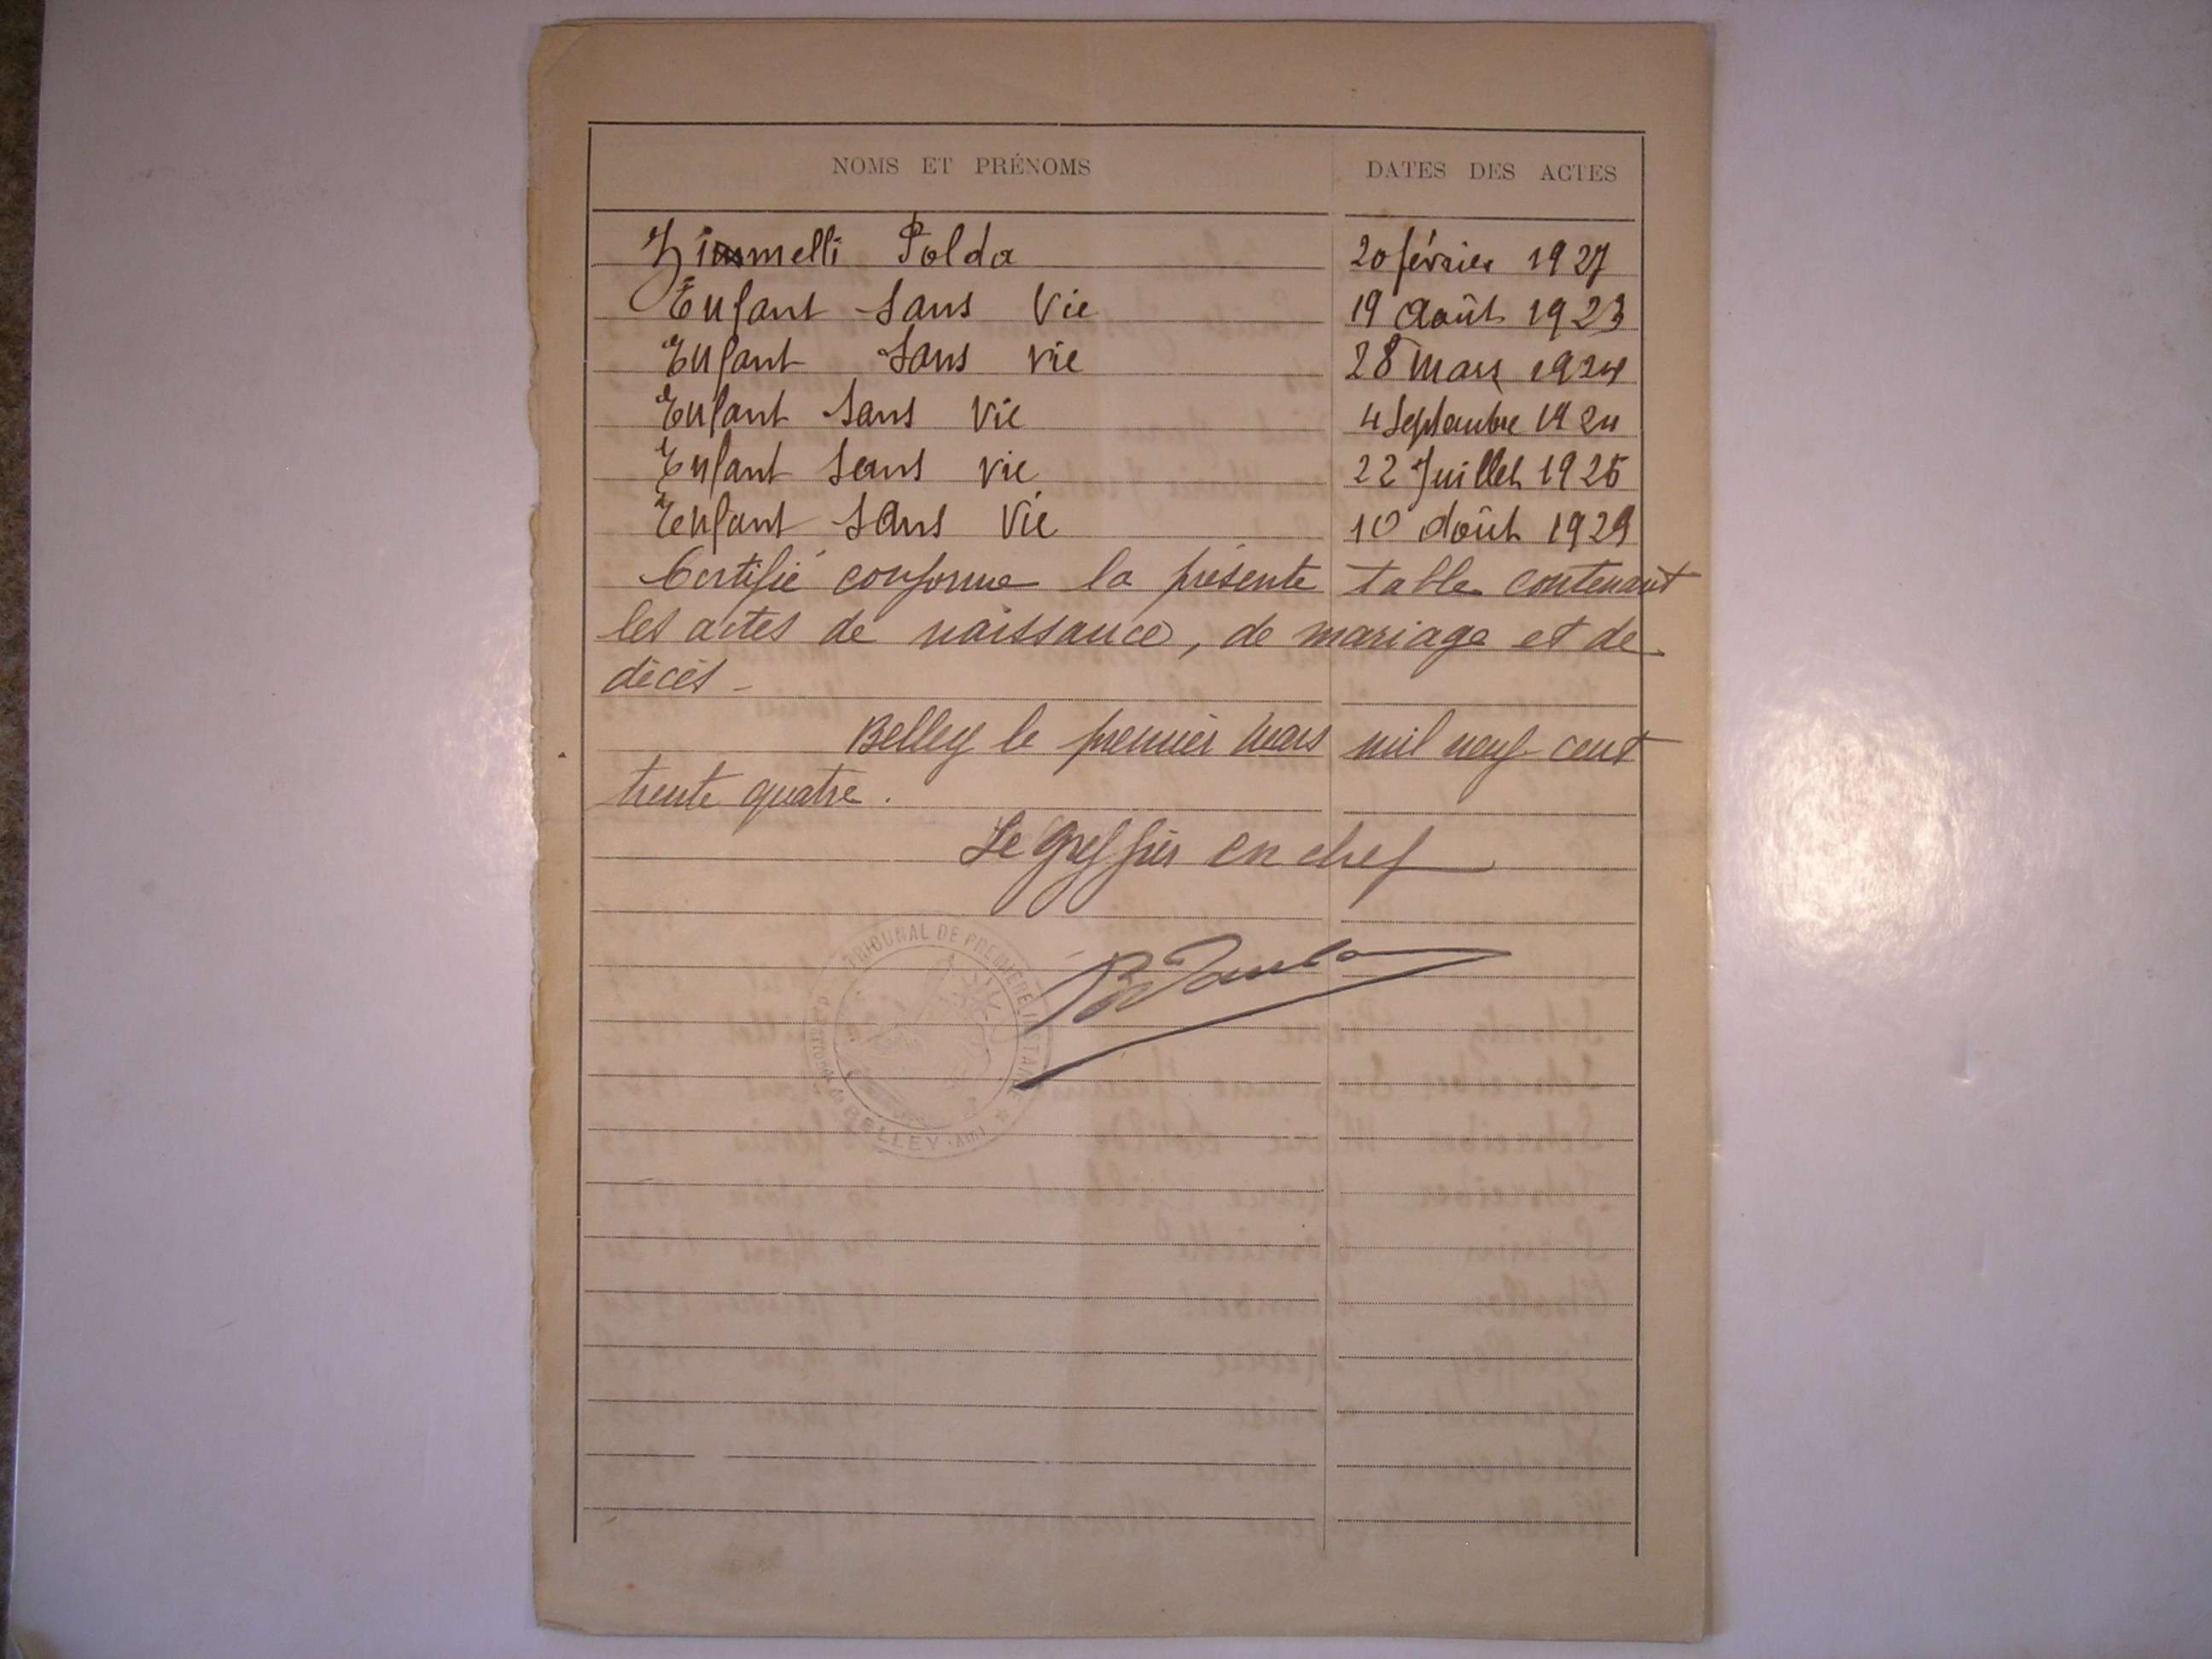 NOMS ET PRÉNOMS DATES DES ACTES
Polda 20 février 1927
Enfant Sans Vie 19 Août 1923
Enfant Sans vie 28 Mars 1924
Enfant Sans Vie 4 Septembre 1924
Enfant Sans vie 22 Juillet 1925
Enfant Sans Vie 10 Août 1929
Certifié conforme la présente table contenant
les actes de naissance, de mariage et de
décès -
Belley le premier Mars mil neuf cent
trente quatre.
Le Greffier en chef
TRIBUNAL DE PREMIÈRE INSTANCE
BELLEY (AIN)